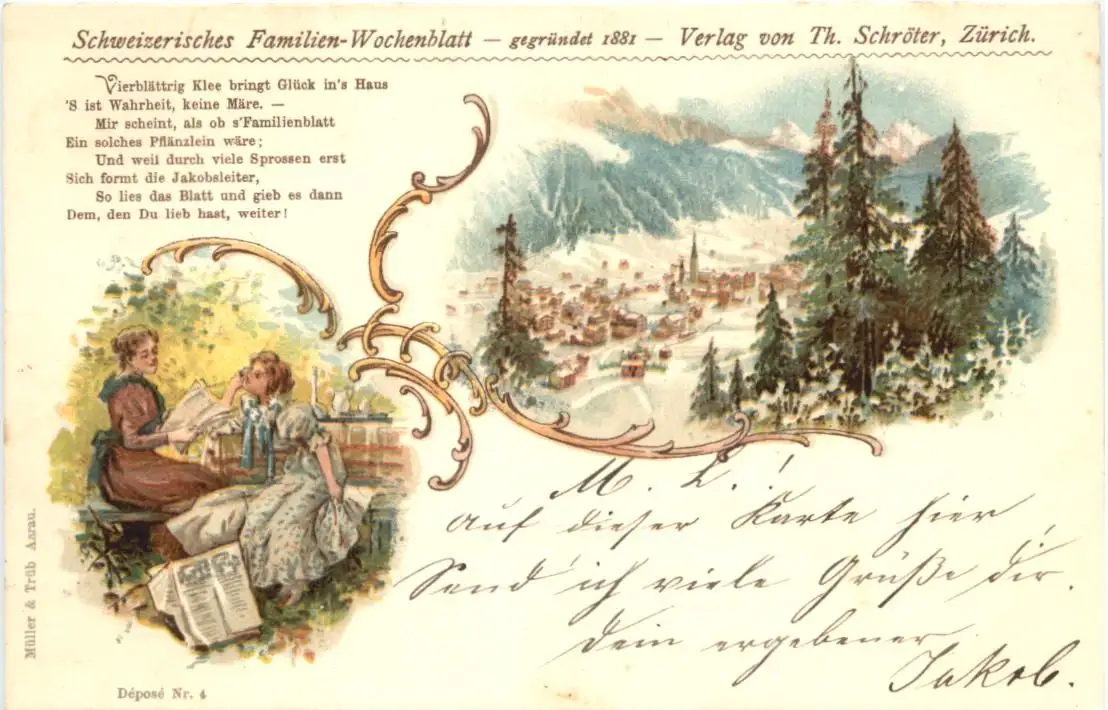 Schweizerisches Familien-Wochenblatt — gegründet 1881 — Verlag von Th. Schröter, Zürich.
Vierblättrig Klee bringt Glück in's Haus
'S ist Wahrheit, keine Märe. —
Mir scheint, als ob s'Familienblatt
Ein solches Pflänzlein wäre;
Und weil durch viele Sprossen erst
Sich formt die Jakobsleiter,
So lies das Blatt und gieb es dann
Dem, den Du lieb hast, weiter!
M. L.!
Auf dieser Karte hier,
Send' ich viele Grüße dir.
Dein ergebener
Jakob.
Müller & Trüb Aarau.
Déposé Nr. 4